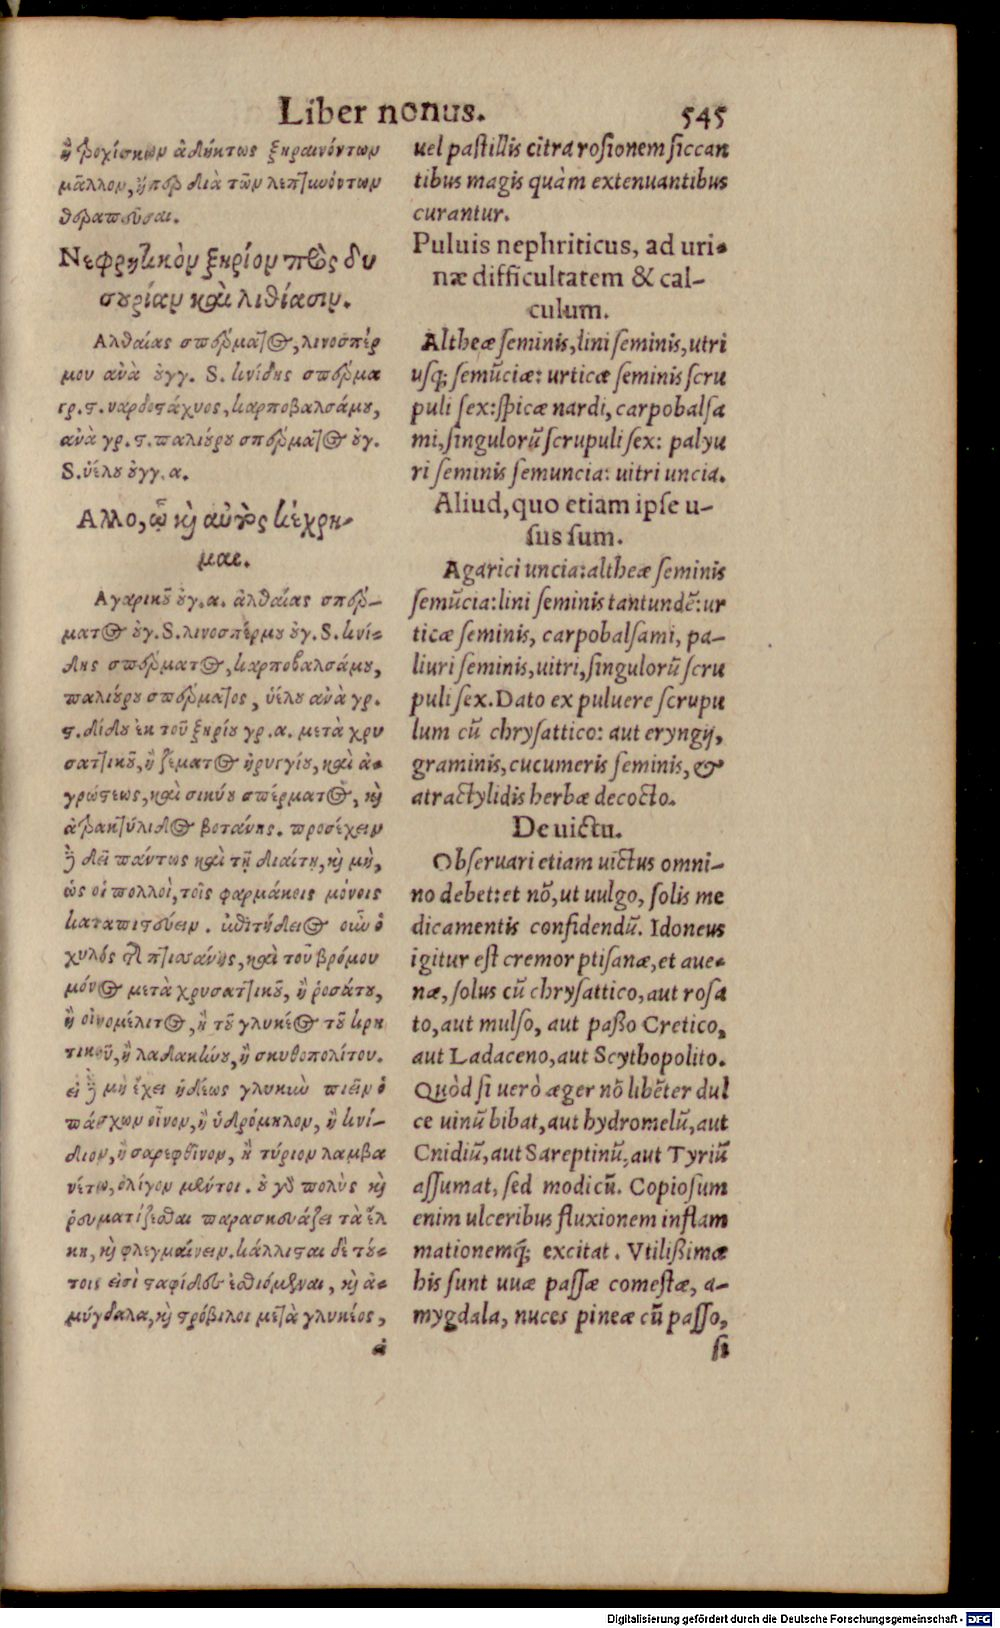 Liber nonus. 545
ἢ τροχίσκων ἀδήκτως ξηραινόντων
μᾶλλον, ἤπερ διὰ τῶν λεπτυνόντων
θεραπεῦσαι.
Νεφριτικὸν ξηρίον πρὸς δυ
σουρίαν καὶ λιθίασιν.
Αλθαίας σπέρματος, λινοσπέρ
μου ἀνὰ ὀγγ. S. κνίδης σπέρμα
γρ. ϛ. ναρδοστάχυος, καρποβαλσάμου,
ἀνὰ γρ. ϛ. παλιούρου σπέρματος ὀγ.
S. ὑέλου ὀγγ. α.
Αλλο, ᾧ κὶ αὐτὸς κέχρη-
μαι.
Αγαρικοῦ ὀγ. α. ἀλθαίας σπέρ-
ματος ὀγ. S. λινοσπέρμου ὀγ. S. κνί-
δης σπέρματος, καρποβαλσάμου,
παλιούρου σπέρματος, ὑέλου ἀνὰ γρ.
ϛ. δίδου ἐκ τοῦ ξηρίου γρ. α. μετὰ χρυ
σατικοῦ, ἢ ζέματος ἠρυγγίου, καὶ ἀ-
γρώστεως, καὶ σικύου σπέρματος, κὶ
ἀτρακτύλιδος βοτάνης. προσέχειν
δὲ δεῖ πάντως καὶ τῇ διαίτῃ, κὶ μὴ,
ὡς οἱ πολλοὶ, τοῖς φαρμάκοις μόνοις
καταπιστεύειν. ἐπιτήδειος οὖν ὁ
χυλός τῆς πτισάνης, καὶ τοῦ βρόμου
μόνος μετὰ χρυσατικοῦ, ἢ ῥοσάτου,
ἢ οἰνομέλιτος, ἢ τοῦ γλυκέος τοῦ κρη
τικοῦ, ἢ λαδακηνοῦ, ἢ σκυθοπολίτου.
εἰ δὲ μὴ ἔχει ἡδέως γλυκὺν πιεῖν ὁ
πάσχων οἶνον, ἢ ὑδρόμηλον, ἢ κνί-
διον, ἢ σαρεφθῖνον, ἢ τύριον λαμβα
νέτω, ὀλίγον μέντοι. ὁ γὰρ πολὺς κὶ
ῥευματίζεσθαι παρασκευάζει τὰ ἕλ
κη, κὶ φλεγμαίνειν. κάλλισται δὲ τού-
τοις εἰσὶ σταφίδες ἐσθιόμεναι, κὶ ἀ-
μύγδαλα, κὶ στρόβιλοι μετὰ γλυκέος,
ἀ
uel pastillis citra rosionem siccan
tibus magis quàm extenuantibus
curantur.
Puluis nephriticus, ad uri-
næ difficultatem & cal-
culum.
Altheæ seminis, lini seminis, utri
usq; semũciæ: urticæ seminis scru
puli sex: spicæ nardi, carpobalsa
mi, singulorũ scrupuli sex: palyu
ri seminis semuncia: uitri uncia.
Aliud, quo etiam ipse u-
sus sum.
Agarici uncia: altheæ seminis
semũcia: lini seminis tantundẽ: ur
ticæ seminis, carpobalsami, pa-
liuri seminis, uitri, singulorũ scru
puli sex. Dato ex puluere scrupu
lum cũ chrysattico: aut eryngij,
graminis, cucumeris seminis, &
atractylidis herbæ decocto.
De uictu.
Obseruari etiam uictus omni-
no debet: et nõ, ut uulgo, solis me
dicamentis confidendũ. Idoneus
igitur est cremor ptisanæ, et aue-
næ, solus cũ chrysattico, aut rosa
to, aut mulso, aut passo Cretico,
aut Ladaceno, aut Scythopolito.
Quòd si uerò æger nõ libẽter dul
ce uinũ bibat, aut hydromelũ, aut
Cnidiũ, aut Sareptinũ, aut Tyriũ
assumat, sed modicũ. Copiosum
enim ulceribus fluxionem inflam
mationemq; excitat. Vtilissimæ
his sunt uuæ passæ comestæ, a-
mygdala, nuces pineæ cũ passo,
si
Digitalisierung gefördert durch die Deutsche Forschungsgemeinschaft - DFG